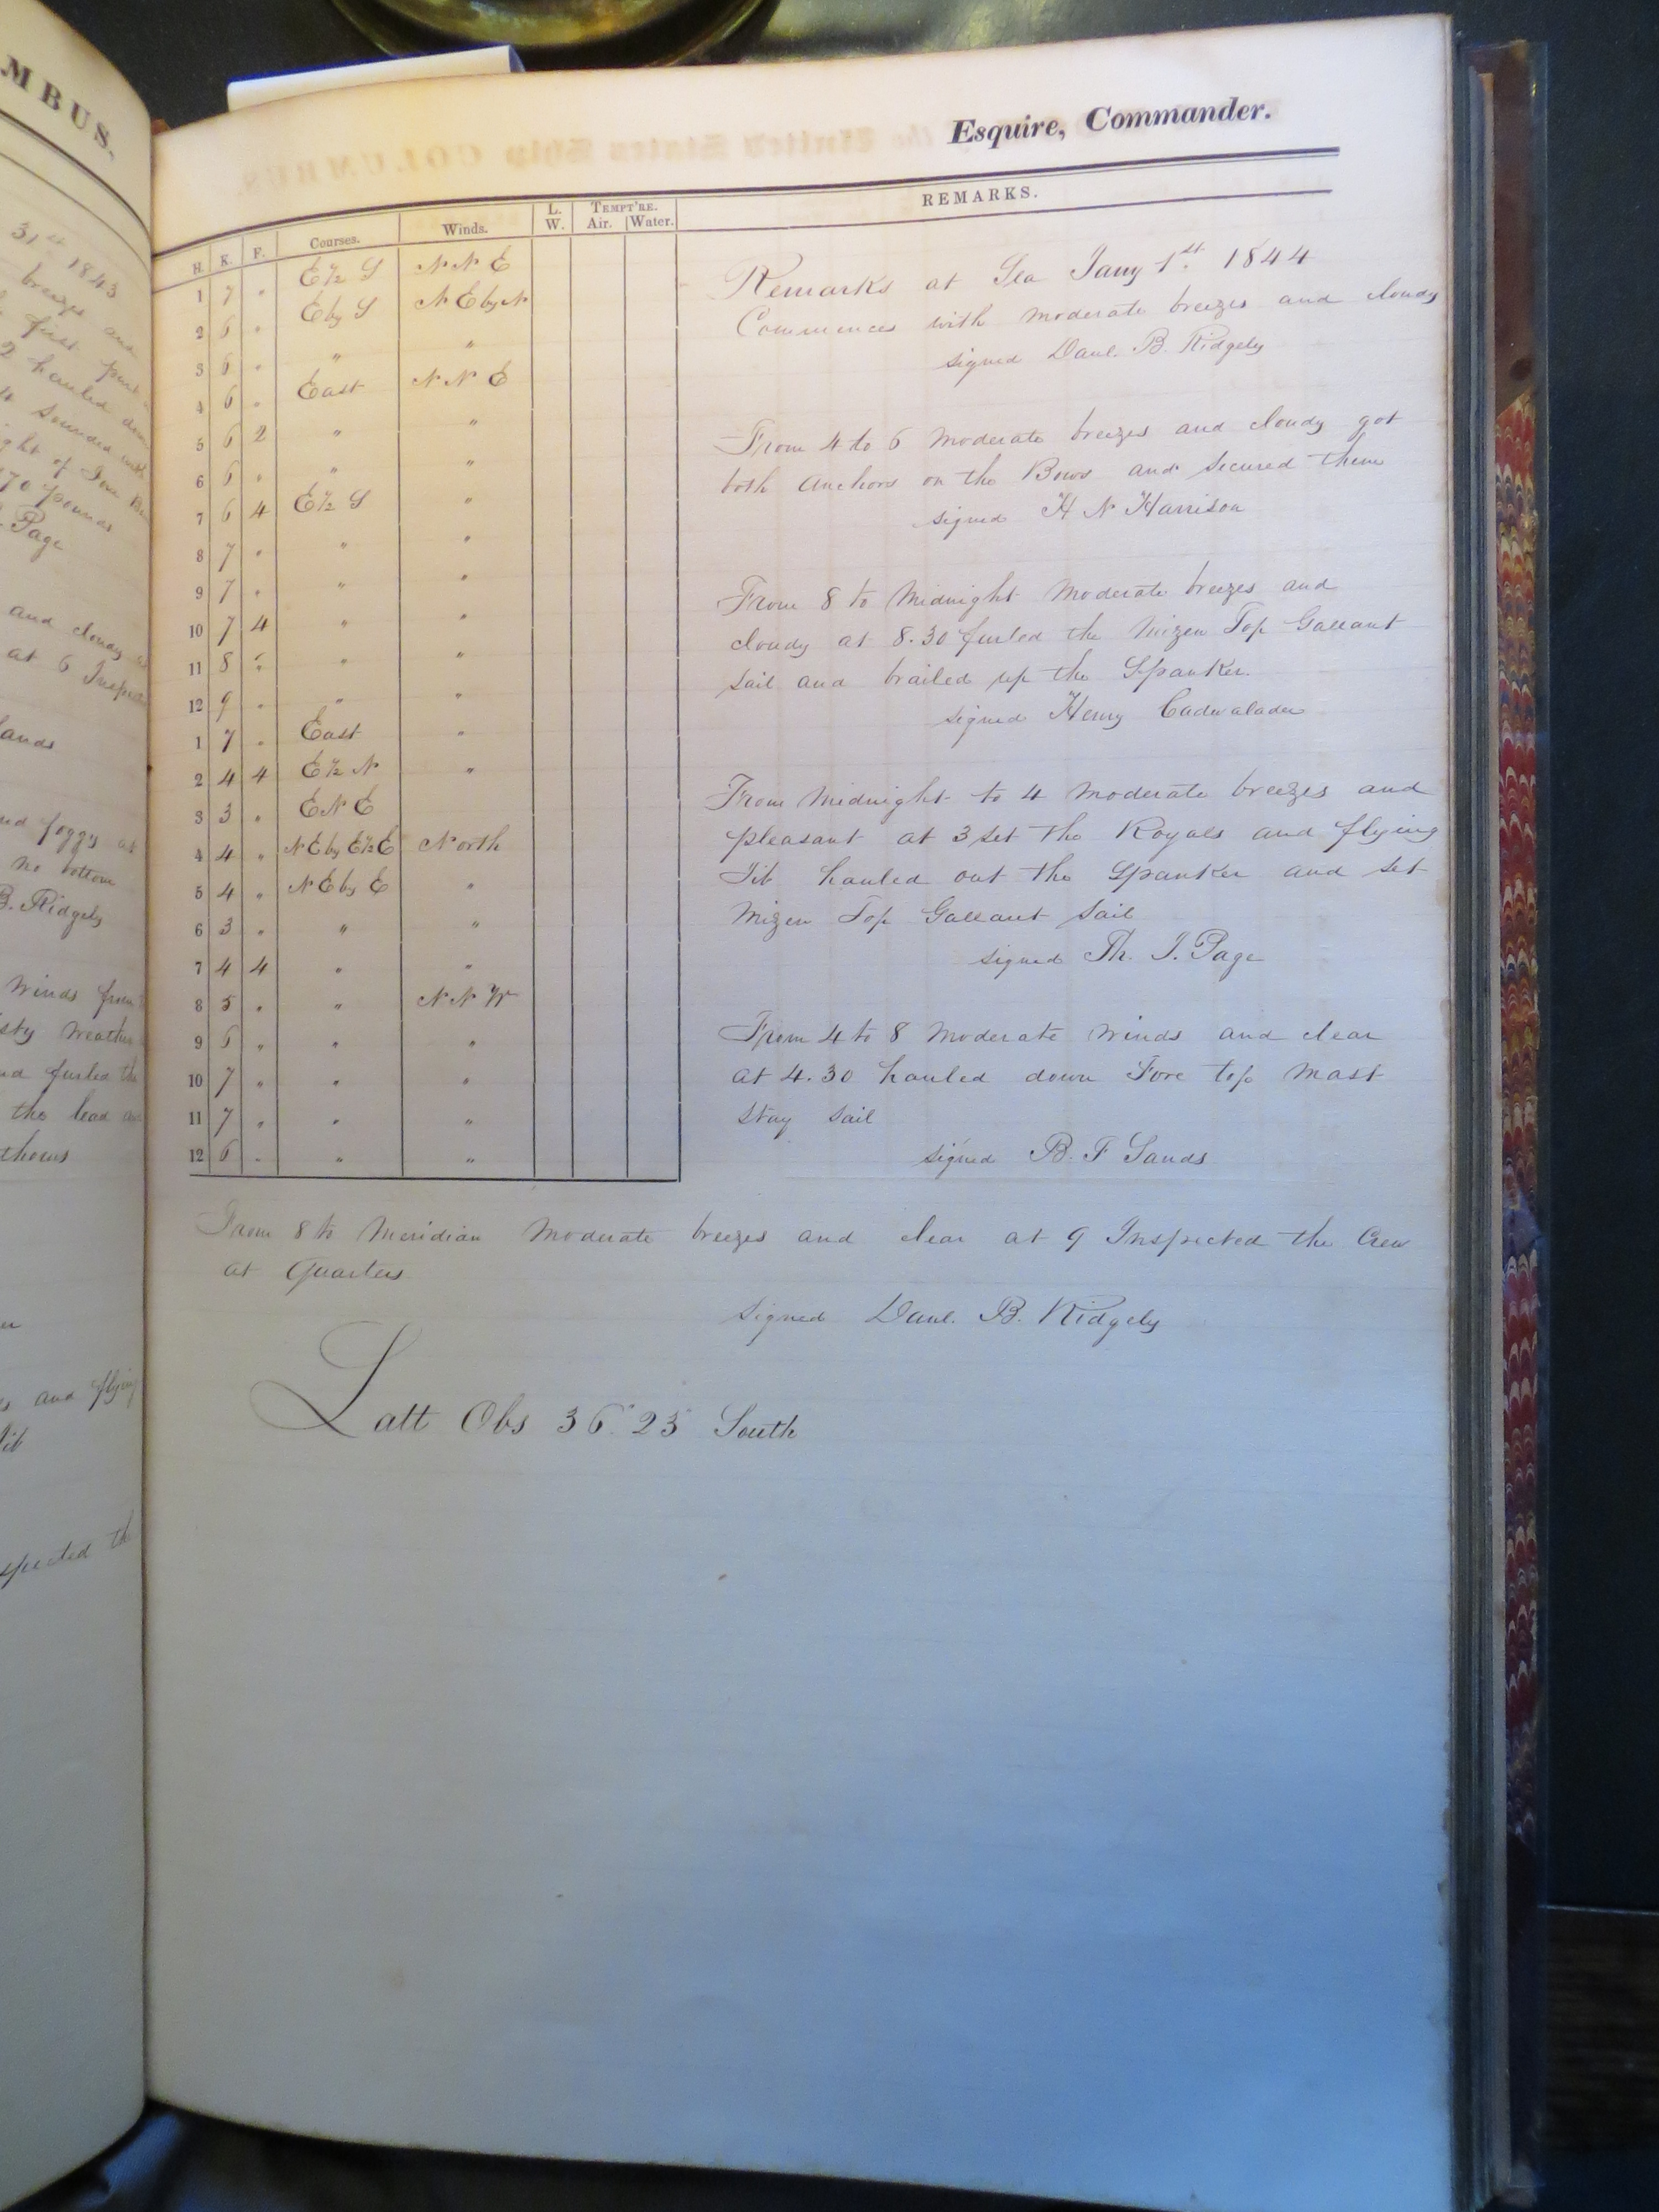 MBUS.
31st 1843
breezes and
first part
2 hauled down
4 sounded with
70 pounds
Page
and cloudy
at 6 Inspected
lands
nd foggy at
no bottom
B. Ridgely
Winds from
sty weather
nd furled the
the lead and
thoms
s and flying
Jib
spected th
Esquire, Commander.
H. K. F. Courses. Winds. L. W. TEMPT'RE. Air. Water. REMARKS.
1 7 " E ½ S N N E
2 6 " E by S N E by N
3 6 " " "
4 6 " East N N E
5 6 2 " "
6 6 " " "
7 6 4 E ½ S "
8 7 " " "
9 7 " " "
10 7 4 " "
11 8 " " "
12 9 " " "
1 7 " East "
2 4 4 E ½ N "
3 3 " E N E
4 4 " N E by E ½ E North
5 4 " N E by E "
6 3 " " "
7 4 4 " "
8 5 " " N N W
9 6 " " "
10 7 " " "
11 7 " " "
12 6 " " "
Remarks at Sea Jany 1st. 1844
Commences with moderate breezes and cloudy
signed Danl. B. Ridgely
From 4 to 6 moderate breezes and cloudy got
both anchors on the Bows and secured them
signed H N Harrison
From 8 to Midnight moderate breezes and
cloudy at 8.30 furled the Mizen Top Gallant
sail and brailed up the Spanker.
signed Henry Cadwalader
From Midnight to 4 moderate breezes and
pleasant at 3 set the Royals and flying
Jib hauled out the Spanker and set
Mizen Top Gallant sail
signed Th. J. Page
From 4 to 8 moderate winds and clear
at 4.30 hauled down Fore top mast
stay sail
signed B. F Sands
From 8 to Meridian moderate breezes and clear at 9 Inspected the Crew
at Quarters
signed Danl. B. Ridgely
Latt Obs 36° 23' South